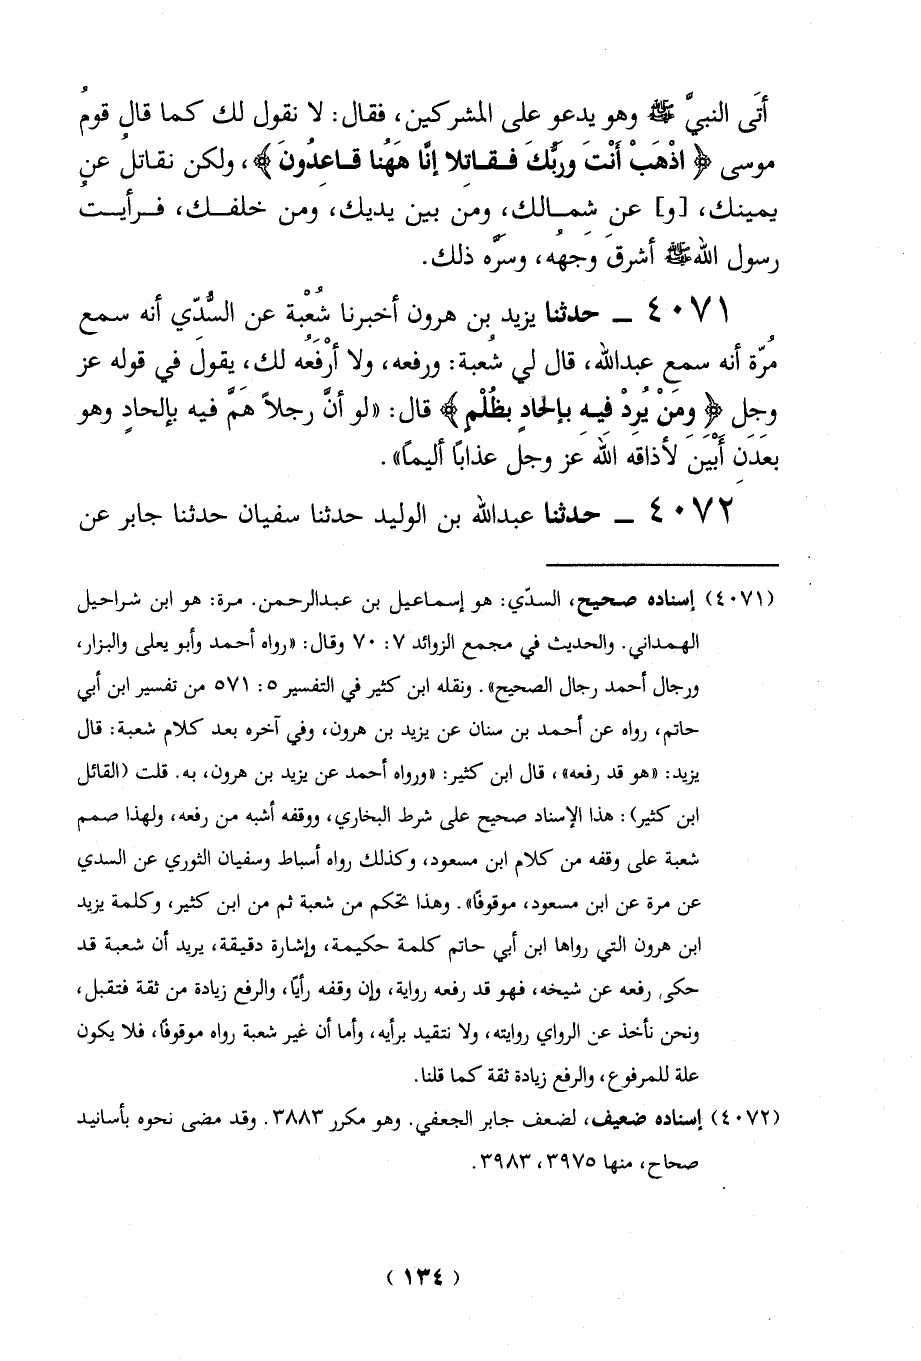 أتَى النبيَّ ﷺ وهو يدعو على المشركين، فقال: لا نقول لك كما قال قومُ
موسى ﴿ اذْهَبْ أنْتَ وربُّكَ فقاتلا إنَّا هَهُنا قاعدُونَ ﴾، ولكن نقاتل عن
يمينك، [و] عن شمالك، ومن بين يديك، ومن خلفك، فرأيتُ
رسول الله ﷺ أشرقَ وجهه، وسرَّه ذلك.
٤٠٧١ ــ حدثنا يزيد بن هرون أخبرنا شُعْبة عن السُّدّي أنه سمع
مُرّة أنه سمع عبدالله، قال لي شُعبة: ورفعه، ولا أرْفَعُه لك، يقول في قوله عز
وجل ﴿ ومَنْ يُرِدْ فيهِ بإلحادٍ بظُلْمٍ ﴾ قال: «لو أنَّ رجلاً همَّ فيه بإلحادٍ وهو
بعَدَنِ أَبْيَنَ لأذاقه الله عز وجل عذاباً أليماً».
٤٠٧٢ ــ حدثنا عبدالله بن الوليد حدثنا سفيان حدثنا جابر عن
(٤٠٧١) إسناده صحيح، السدّي: هو إسماعيل بن عبدالرحمن. مرة: هو ابن شراحيل
الهمداني. والحديث في مجمع الزوائد ٧: ٧٠ وقال: «رواه أحمد وأبو يعلى والبزار،
ورجال أحمد رجال الصحيح». ونقله ابن كثير في التفسير ٥: ٥٧١ من تفسير ابن أبي
حاتم، رواه عن أحمد بن سنان عن يزيد بن هرون، وفي آخره بعد كلام شعبة: قال
يزيد: «هو قد رفعه»، قال ابن كثير: «ورواه أحمد عن يزيد بن هرون، به. قلت (القائل
ابن كثير): هذا الإسناد صحيح على شرط البخاري، ووقفه أشبه من رفعه، ولهذا صمم
شعبة على وقفه من كلام ابن مسعود، وكذلك رواه أسباط وسفيان الثوري عن السدي
عن مرة عن ابن مسعود، موقوفًا». وهذا تحكم من شعبة ثم من ابن كثير، وكلمة يزيد
ابن هرون التي رواها ابن أبي حاتم كلمة حكيمة، وإشارة دقيقة، يريد أن شعبة قد
حكى رفعه عن شيخه، فهو قد رفعه رواية، وإن وقفه رأيًا، والرفع زيادة من ثقة فتقبل،
ونحن نأخذ عن الرواي روايته، ولا نتقيد برأيه، وأما أن غير شعبة رواه موقوفًا، فلا يكون
علة للمرفوع، والرفع زيادة ثقة كما قلنا.
(٤٠٧٢) إسناده ضعيف، لضعف جابر الجعفي. وهو مكرر ٣٨٨٣. وقد مضى نحوه بأسانيد
صحاح، منها ٣٩٧٥، ٣٩٨٣.
(١٣٤)